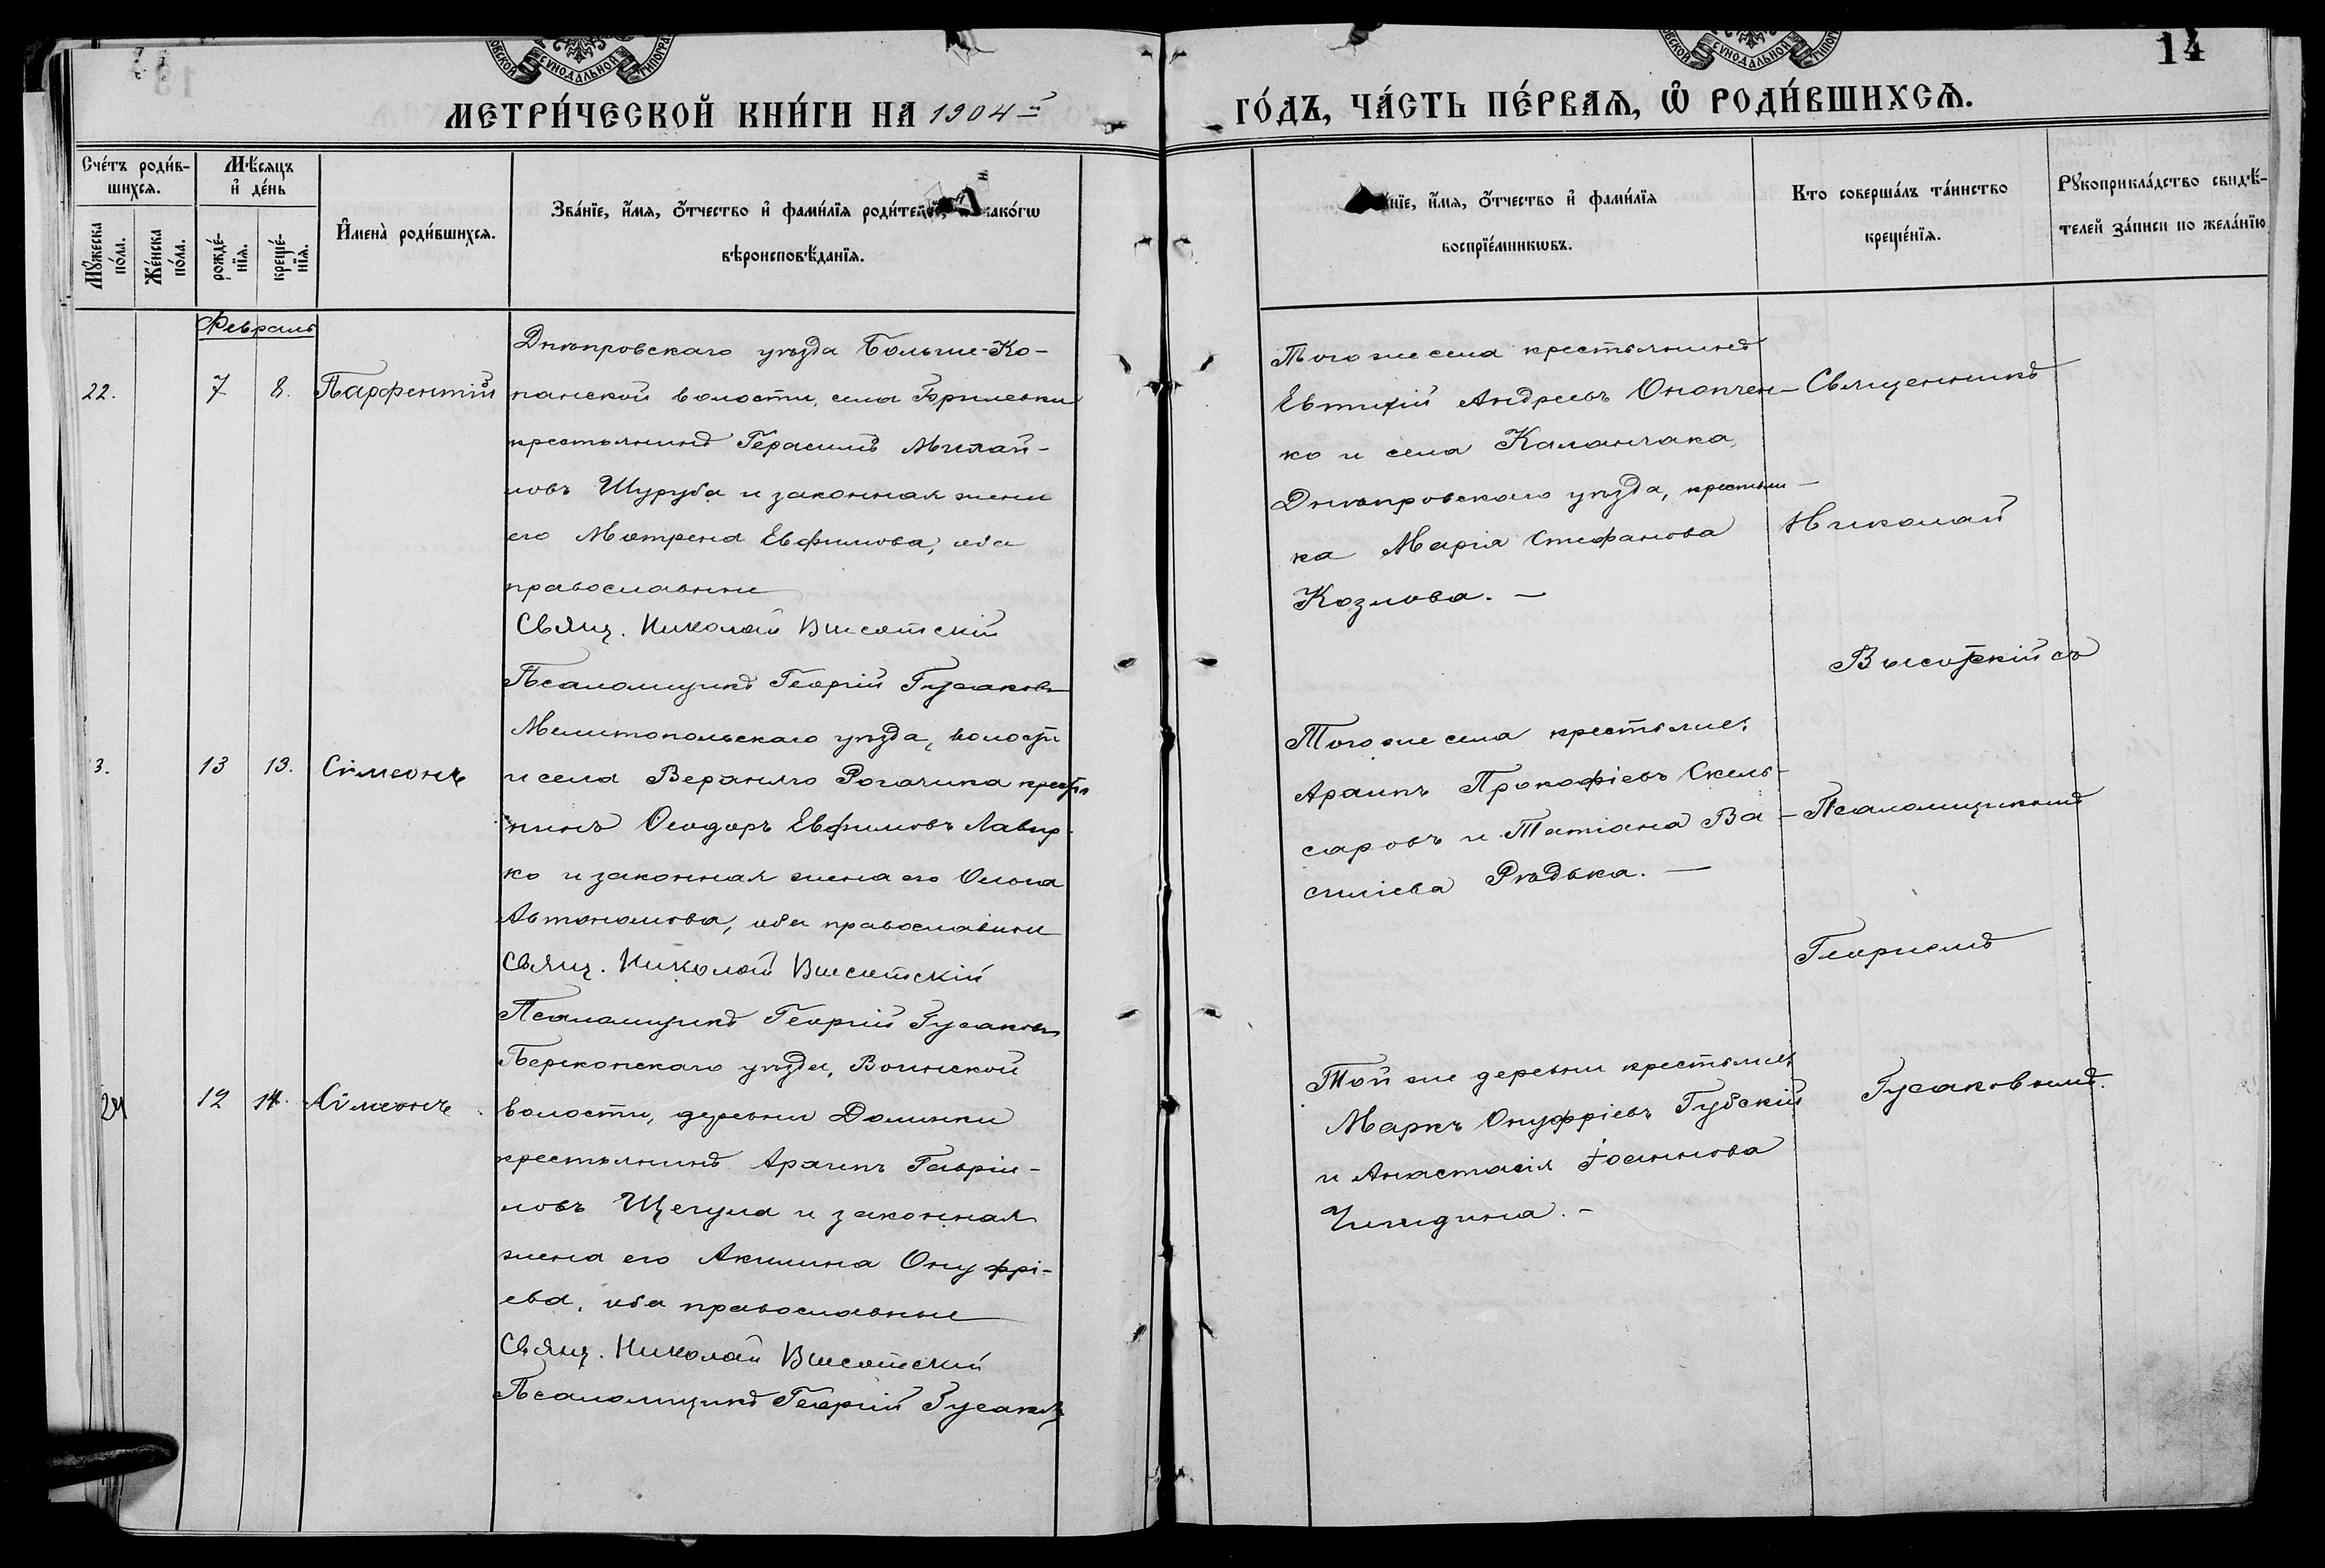 14
МЕТРИ́ЧЕСКОЙ КНИ́ГИ НА 1904й
ГО́ДЪ, ЧА́СТЬ ПЕ́РВАѦ, Ѡ҆ РОДИ́ВШИХСѦ.
Сче́тъ роди́в-
шихсѧ.
Мꙋ́жеска
по́ла.
Же́нска
по́ла.
Мѣ́сѧцъ
и҆ де́нь
рожде́-
нїѧ.
креще́-
нїѧ.
И҆мена̀ роди́вшихсѧ.
Зва́нїе, и҆́мѧ, ѻ҆́тчество и҆ фами́лїѧ роди́телей, како́гѡ
вѣроисповѣ́данїѧ.
и҆́мѧ, ѻ҆́тчество и҆ фами́лїѧ
воспрїе́мникѡвъ.
Кто соверша́лъ та́инство
креще́нїѧ.
Рꙋкоприкла́дство свидѣ́-
телей за́писи по жела́нїю
Февраль
22.
7
8.
Парфентій
Днѣпровскаго уѣзда Больше-Ко-
панской волости, села
крестьянинъ Герасимъ Михай-
ловъ Шуруба и законная жена
его Мотрена Евфимова, оба
православные
Свящ. Николай Высотскій
Псаломщикъ Георгій Гусаковъ
Того же села крестьянинъ
Евтихій Андреевъ Онопчен-
ко и села Каланчака,
Днѣпровскаго уѣзда, крестьян-
ка Марія Стефанова
Козлова. —
3.
13
13.
Сѵмеонъ
Мелитопольскаго уѣзда, волости
и села Верхняго Рогачика крестья
нинъ Ѳеодоръ Евфимовъ
ко и законная жена его
Автономова, оба православные
Свящ. Николай Высотскій
Псаломщикъ Георгій Гусаковъ
Того же села крестьяне:
Архипъ Прокофіевъ Скель-
саровъ и Татіана Ва-
силіева Рѣдька. —
24
12
14.
Сѵмеонъ
Перекопскаго уѣзда, Воинской
волости, деревни Долинки
крестьянинъ Архипъ Гавріи-
ловъ Щегула и законная
жена его Акилина Онуфрі-
ева, оба православные
Свящ. Николай Высотскій
Псаломщикъ Георгій Гусаковъ
Той же деревни крестьяне:
Маркъ Онуфріевъ Губскій
и Анастасія Іоаннова
Священникъ
Николай
Высотскій съ
Псаломщикомъ
Георгіемъ
Гусаковымъ.